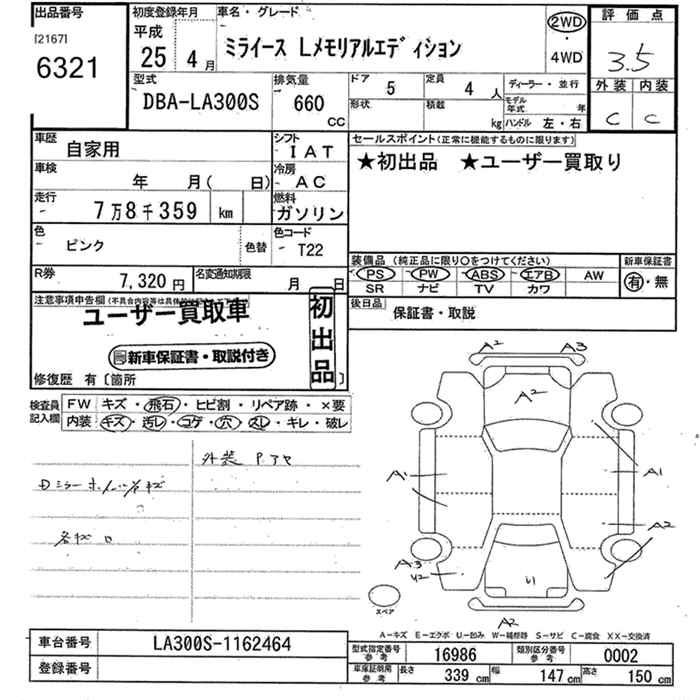 出品番号
[2167]
6321
初度登録年月
平成
25 4 月
車名・グレード
ミライース Lメモリアルエディション
2WD
・
4WD
評価点
3.5
外装 内装
C C
型式
DBA-LA300S
排気量
660
CC
ドア 5
定員 4 人
ディーラー・並行
形状
積載 kg
モデル年式 年
ハンドル 左・右
車歴
自家用
シフト
IAT
車検
年 月( 日)
冷房
AC
走行
7万8千359 km
燃料
ガソリン
色
ピンク
色替
色コード
T22
R券
7,320 円
名変通知期限
月 日
セールスポイント(正常に機能するものに限ります)
★初出品 ★ユーザー買取り
装備品(純正品に限り○をつけてください)
PS PW ABS エアB AW
SR ナビ TV カワ
新車保証書
有・無
後日品
保証書・取説
注意事項申告欄
ユーザー買取車
新車保証書・取説付き
初出品
修復歴 有〔箇所 〕
検査員記入欄
FW キズ・飛石・ヒビ割・リペア跡・×要
内装 キズ・汚レ・コゲ・穴・スレ・キレ・破レ
外装 P.アヤ
A2 A3
A2
A1 A1
A2
A3
U2
U1
A2
スペア
A-キズ E-エクボ U-凹み W-補修跡 S-サビ C-腐食 XX-交換済
車台番号
LA300S-1162464
登録番号
型式指定番号 参考
16986
類別区分番号 参考
0002
車庫証明用 参考
長さ 339 cm
幅 147 cm
高さ 150 cm